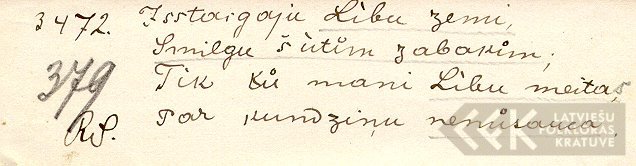 3472. Isstaigaju Lību zemi,
Smilgu šūtim zabakim;
379 Tik kū mani Lību meitas
RS. Par kundziņu nenūsauca.
LATVIEŠU
FOLKLORAS
KRĀTUVE